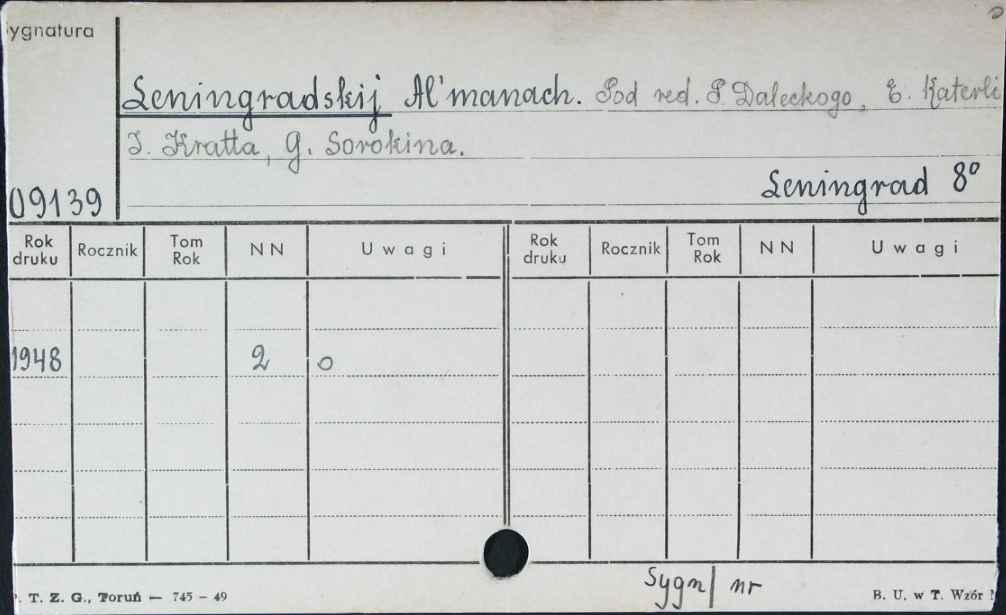 ygnatura
Leningradskij Al'manach. Pod red. P. Daleckogo, E. Katerli
I. Kratta, G. Sorokina.
Leningrad 8°
09139
Rok druku Rocznik Tom Rok NN Uwagi Rok druku Rocznik Tom Rok NN Uwagi
1948 2 o
. T. Z. G., Toruń — 745 – 49
Sygn/ nr
B. U. w T. Wzór